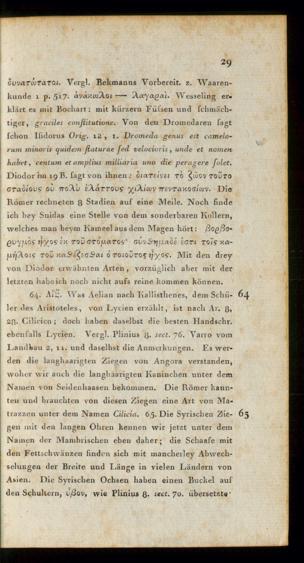 29
δυνατώτατοι. Vergl. Bekmanns Vorbereit. z. Waaren-
kunde 1 p. 517. ἀνάκωλοι — λαγαραί. Wesseling er-
klärt es mit Bochart: mit kürzern Füſsen und ſchmäch-
tiger, graciles conſtitutione. Von den Dromedaren ſagt
ſchon Iſidorus Orig. 12, 1. Dromeda genus est camelo-
rum minoris quidem ſtaturae ſed velocioris, unde et nomen
habet, centum et amplius milliaria uno die peragere ſolet.
Diodor im 19 B. ſagt von ihnen: διατείνει τὸ ζῶον τοῦτο
σταδίους οὐ πολὺ ἐλάττους χιλίων πεντακοσίων. Die
Römer rechneten 8 Stadien auf eine Meile. Noch finde
ich bey Snidas eine Stelle von dem sonderbaren Kollern,
welches man beym Kameel aus dem Magen hört: βορβο-
ρυγμὸς ἦχος ἐκ τοῦ στόματος· συνθημαδὲ ἐστι τοῖς κα-
μήλοις τοῦ καθίζεσθαι ὁ τοιοῦτος ἦχος. Mit den drey
von Diodor erwähnten Arten, vorzüglich aber mit der
letzten habe ich noch nicht aufs reine kommen können.
64. Was Aelian nach Kallisthenes, dem Schü- 64
ler des Aristoteles, von Lycien erzählt, ist nach Ar. 8,
28. Cilicien; doch haben daselbst die besten Handschr.
ebenfalls Lycien. Vergl. Plinius 8. sect. 76. Varro vom
Landbau 2, 11. und daselbst die Anmerkungen. Es wer-
den die langhaarigten Ziegen von Angora verstanden,
woher wir auch die langhaarigten Kaninchen unter dem
Namen von Seidenhaasen bekommen. Die Römer kann-
ten und brauchten von diesen Ziegen eine Art von Ma-
trazzen unter dem Namen Cilicia. 65. Die Syrischen Zie- 65
gen mit den langen Ohren kennen wir jetzt unter dem
Namen der Mambrischen eben daher; die Schaafe mit
den Fettschwänzen finden sich mit mancherley Abwech-
selungen der Breite und Länge in vielen Ländern von
Asien. Die Syrischen Ochsen haben einen Buckel auf
den Schultern, ὕβον, wie Plinius 8. sect. 70. übersetzte